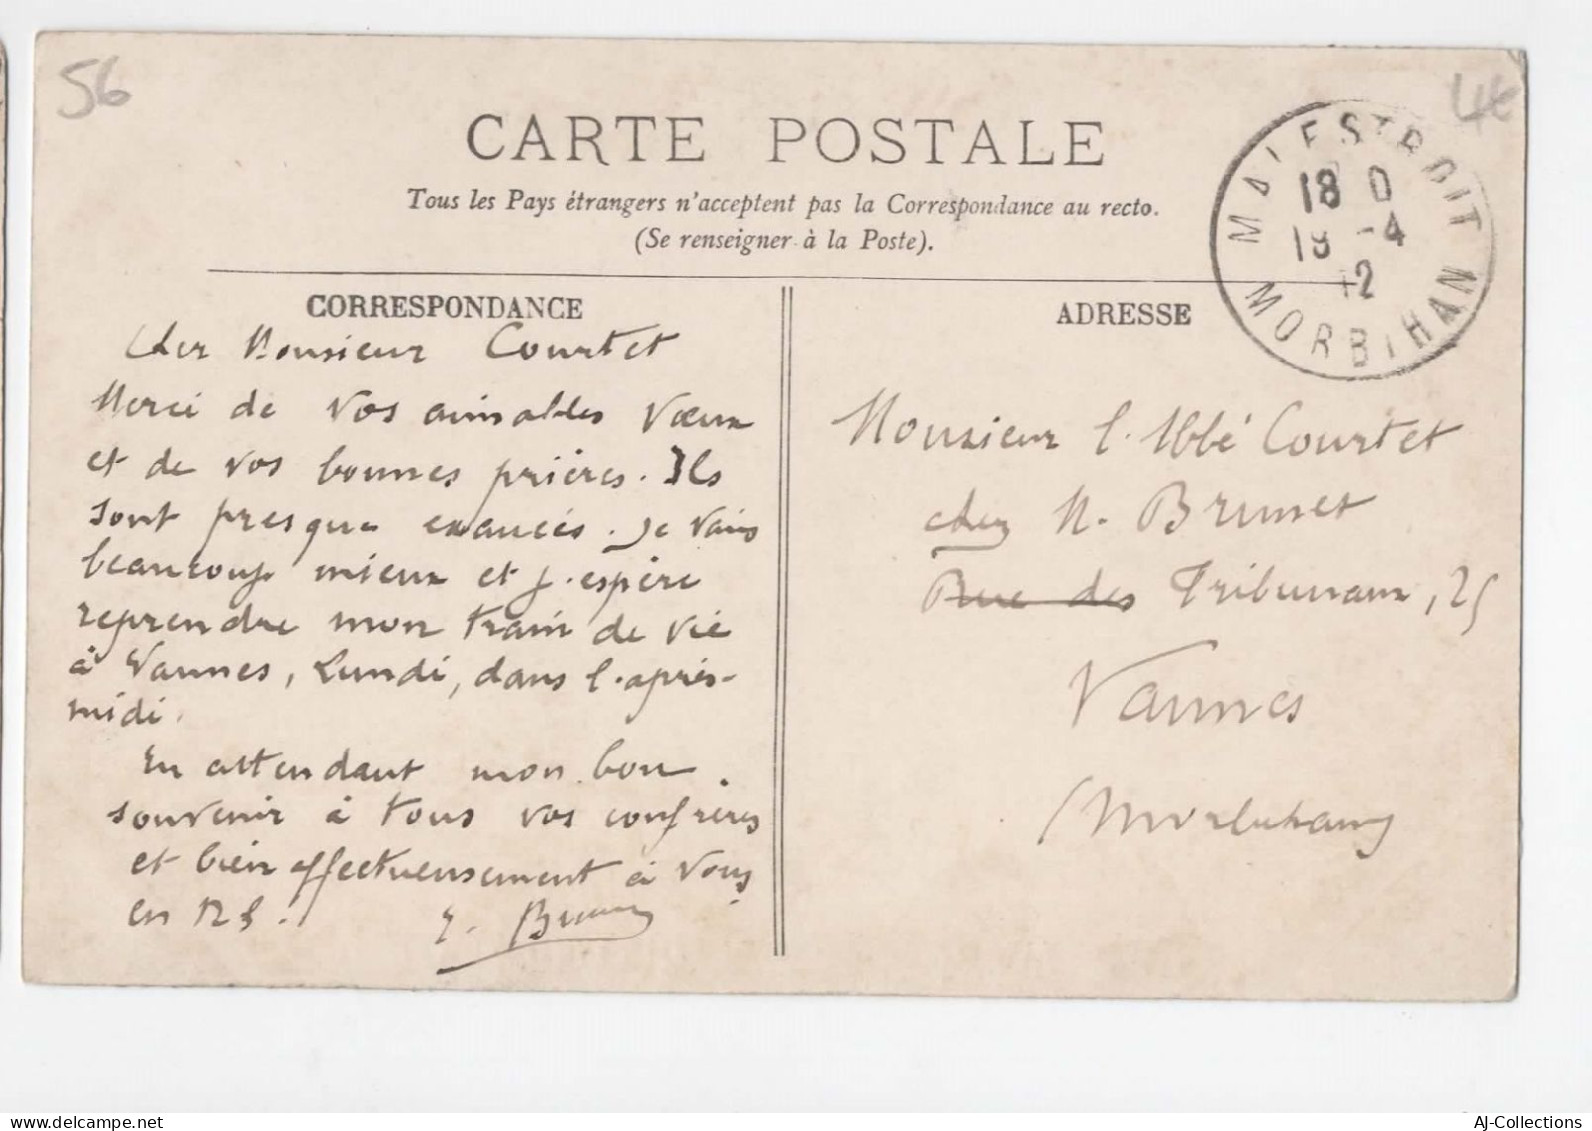 56
4€
CARTE POSTALE
Tous les Pays étrangers n'acceptent pas la Correspondance au recto.
(Se renseigner à la Poste).
MALESTROIT
18 0
19 -4
12
MORBIHAN
CORRESPONDANCE
Cher Monsieur Courtet
Merci de vos aimables vœux
et de vos bonnes prières. Ils
sont presque exaucés. Je vais
beaucoup mieux et j'espère
reprendre mon train de vie
à Vannes, Lundi, dans l'après-
midi.
En attendant mon bon
souvenir à tous vos confrères
et bien affectueusement à vous
en N.S.
ADRESSE
Monsieur l'Abbé Courtet
chez M. Brunet
Rue des Tribunaux, 25
Vannes
(Morbihan)
AJ-Collections